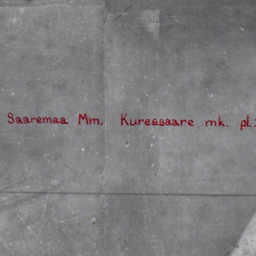 Saaremaa Mm. Kuressaare mk. pl.